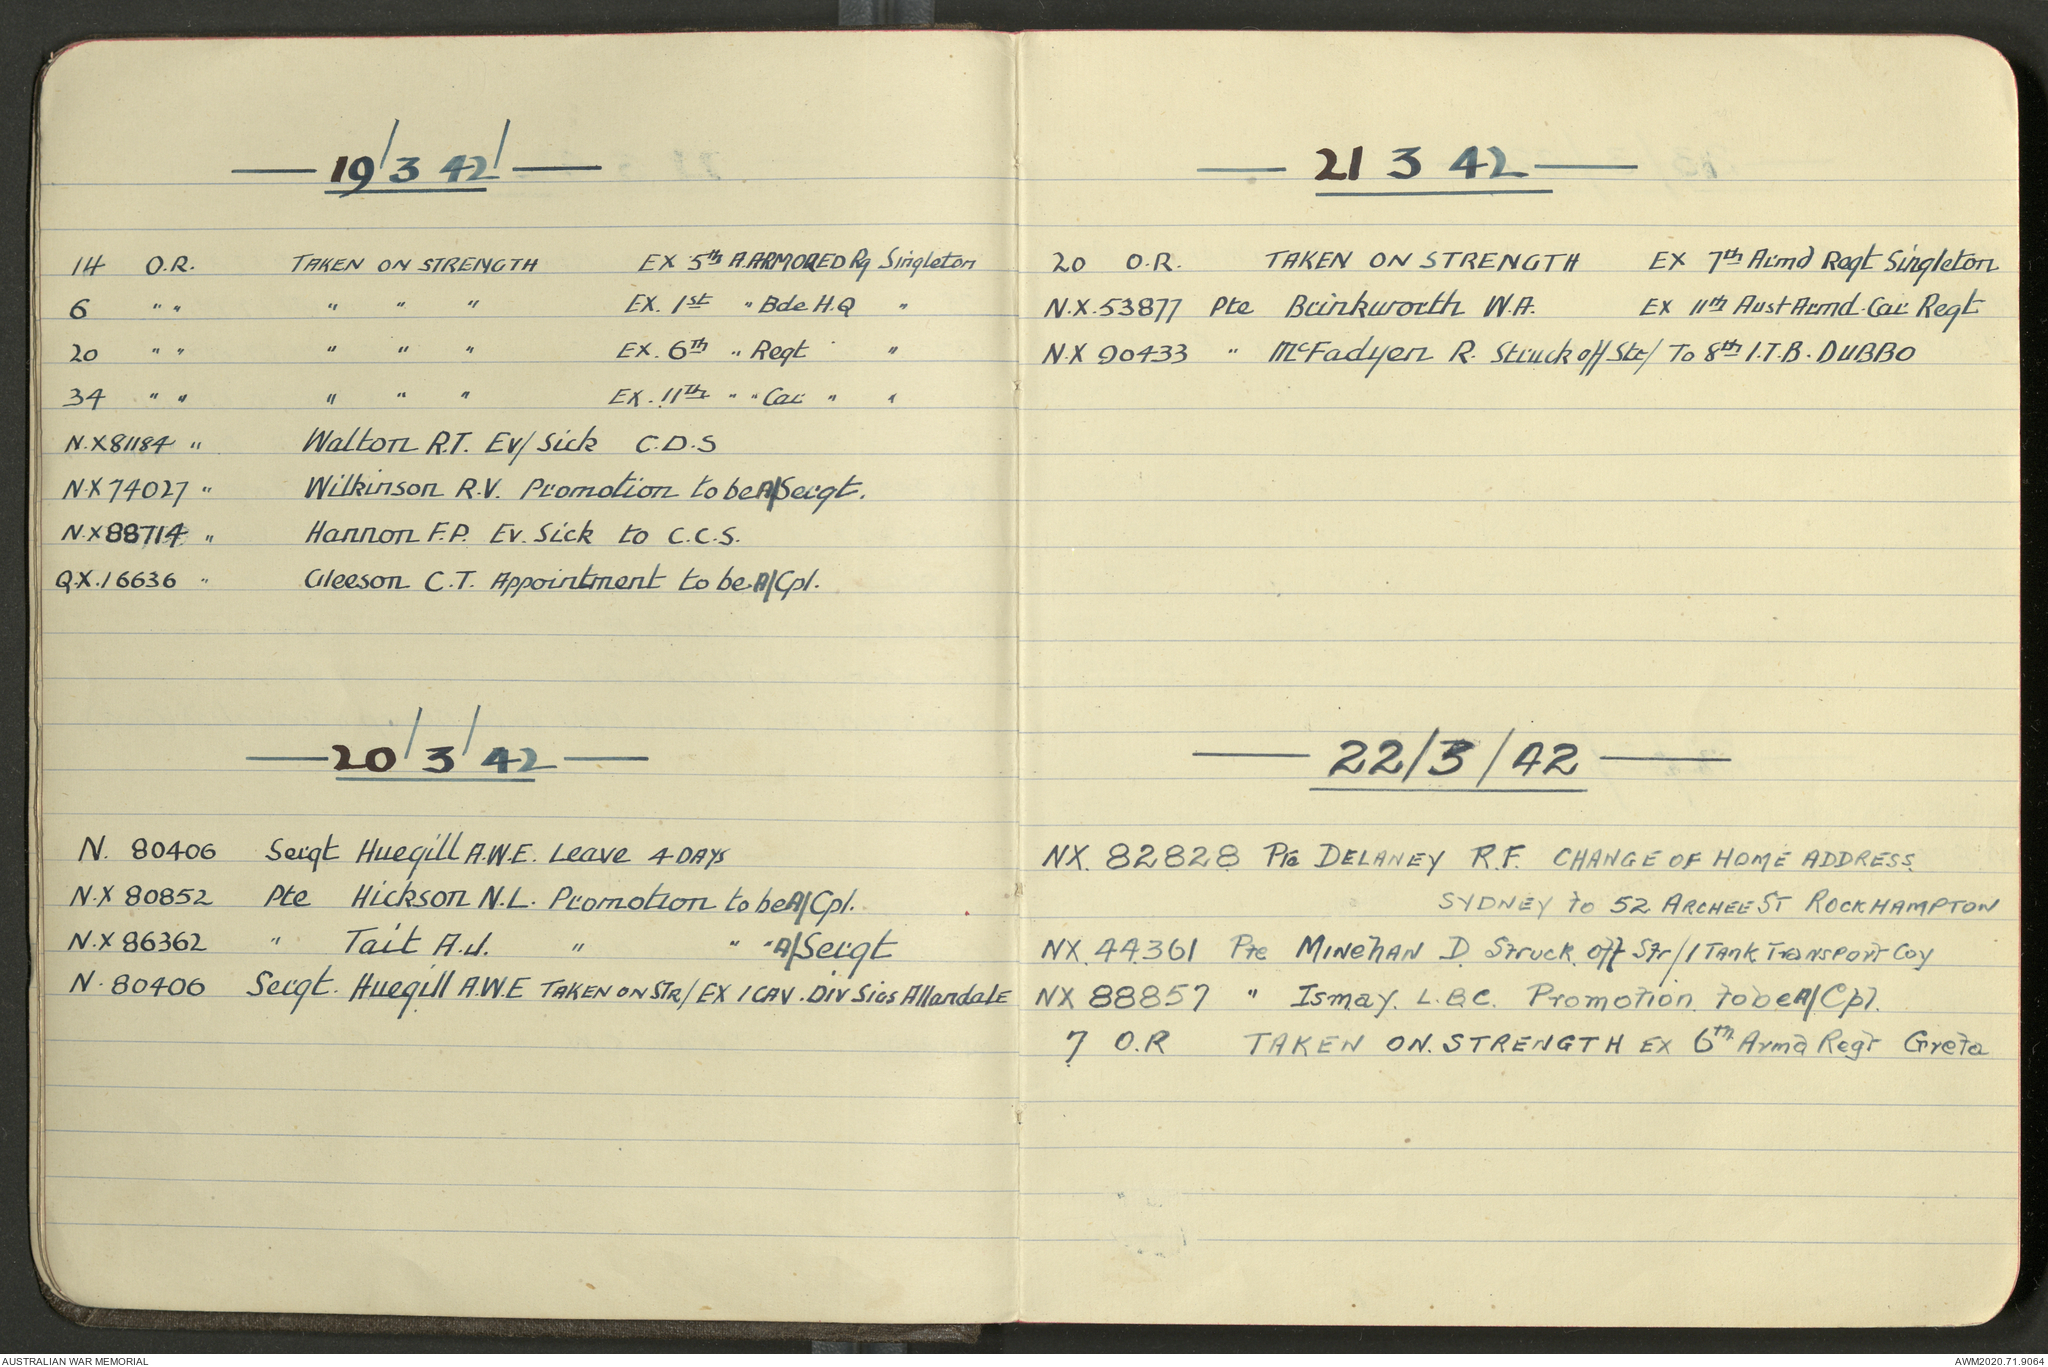 19/3 42/
14 O.R. TAKEN ON STRENGTH EX 5th A.ARMORED Rg Singleton
6 " " " " " EX. 1st " Bde H.Q "
20 " " " " " EX. 6th " Regt "
34 " " " " " EX. 11th " " Car " "
N.X81184 " Walton R.T. Ev/ Sick C.D.S
N.X74027 " Wilkinson R.V. Promotion to be A/Sergt.
N.X88714 " Hannon F.P. Ev. Sick to C.C.S.
Q.X.16636 " Gleeson C.T. Appointment to be A/Cpl.
20/3/42
N. 80406 Sergt Huegill A.W.E. Leave 4 DAYS
N.X 80852 Pte Hickson N.L. Promotion to be A/Cpl.
N.X 86362 " Tait A.J. " " " A/Sergt
N. 80406 Sergt. Huegill A.W.E TAKEN ON STR/ EX 1 CAV. DIV SIGS Allandale
21 3 42
20 O.R. TAKEN ON STRENGTH EX 7th Armd Regt Singleton
N.X.53877 Pte Brinkworth W.A. EX 11th Aust Armd. Car Regt
N.X 90433 " McFadyen R. Struck off Str/ To 8th I.T.B. DUBBO
22/3/42
NX. 82828 Pte DELANEY R.F. CHANGE OF HOME ADDRESS.
SYDNEY to 52 ARCHER ST ROCKHAMPTON
NX. 44361 Pte MINEHAN D. Struck off Str/ 1 TANK TRANSPORT Coy
NX 88857 " Ismay. L.B.C. Promotion to be A/Cpl.
7 O.R TAKEN ON. STRENGTH EX 6th Armd Regt Greta
AUSTRALIAN WAR MEMORIAL
AWM2020.71.9064